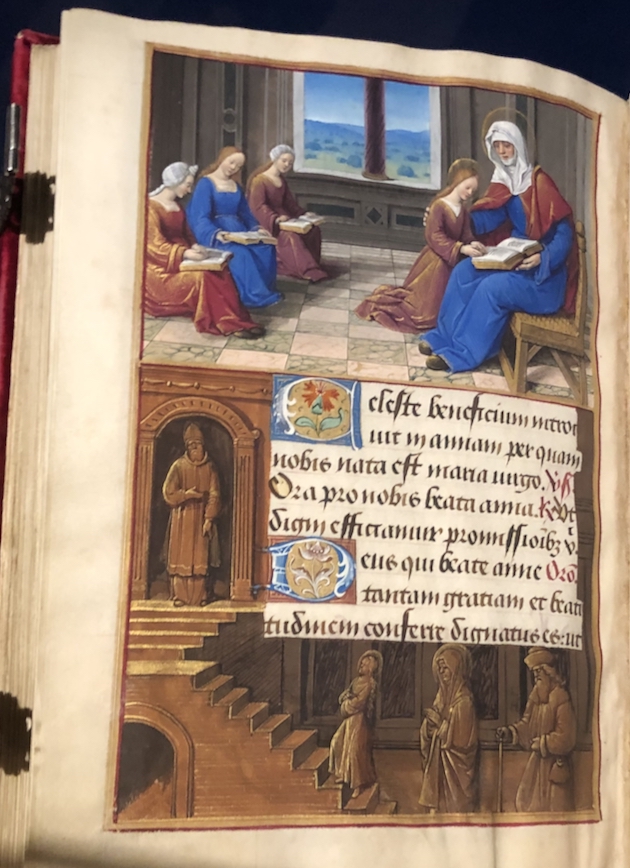 Celeste beneficium introi
uit in annam per quam
nobis nata est maria uirgo.
Ora pro nobis beata anna. Vt
digni efficiamur
Deus qui beate anne Orō.
tantam gratiam et beati
tudinem conferre dignatus es: ut